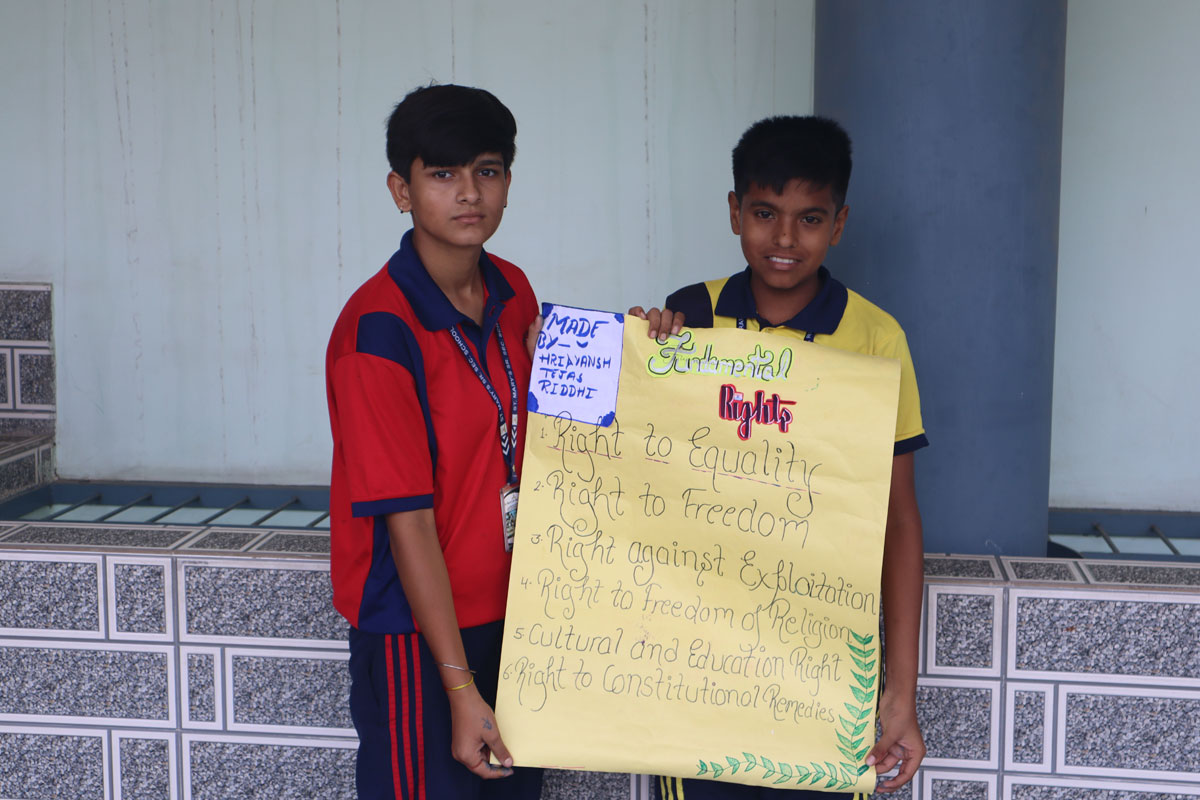 MADE
BY-
HRIDYANSH
TEJAS
RIDDHI
Fundamental
Rights
1. Right to Equality
2. Right to Freedom
3. Right against Exploitation
4. Right to Freedom of Religion
5. Cultural and Education Right
6. Right to Constitutional Remedies
ST. MARY'S SR. SEC. SCHOOL